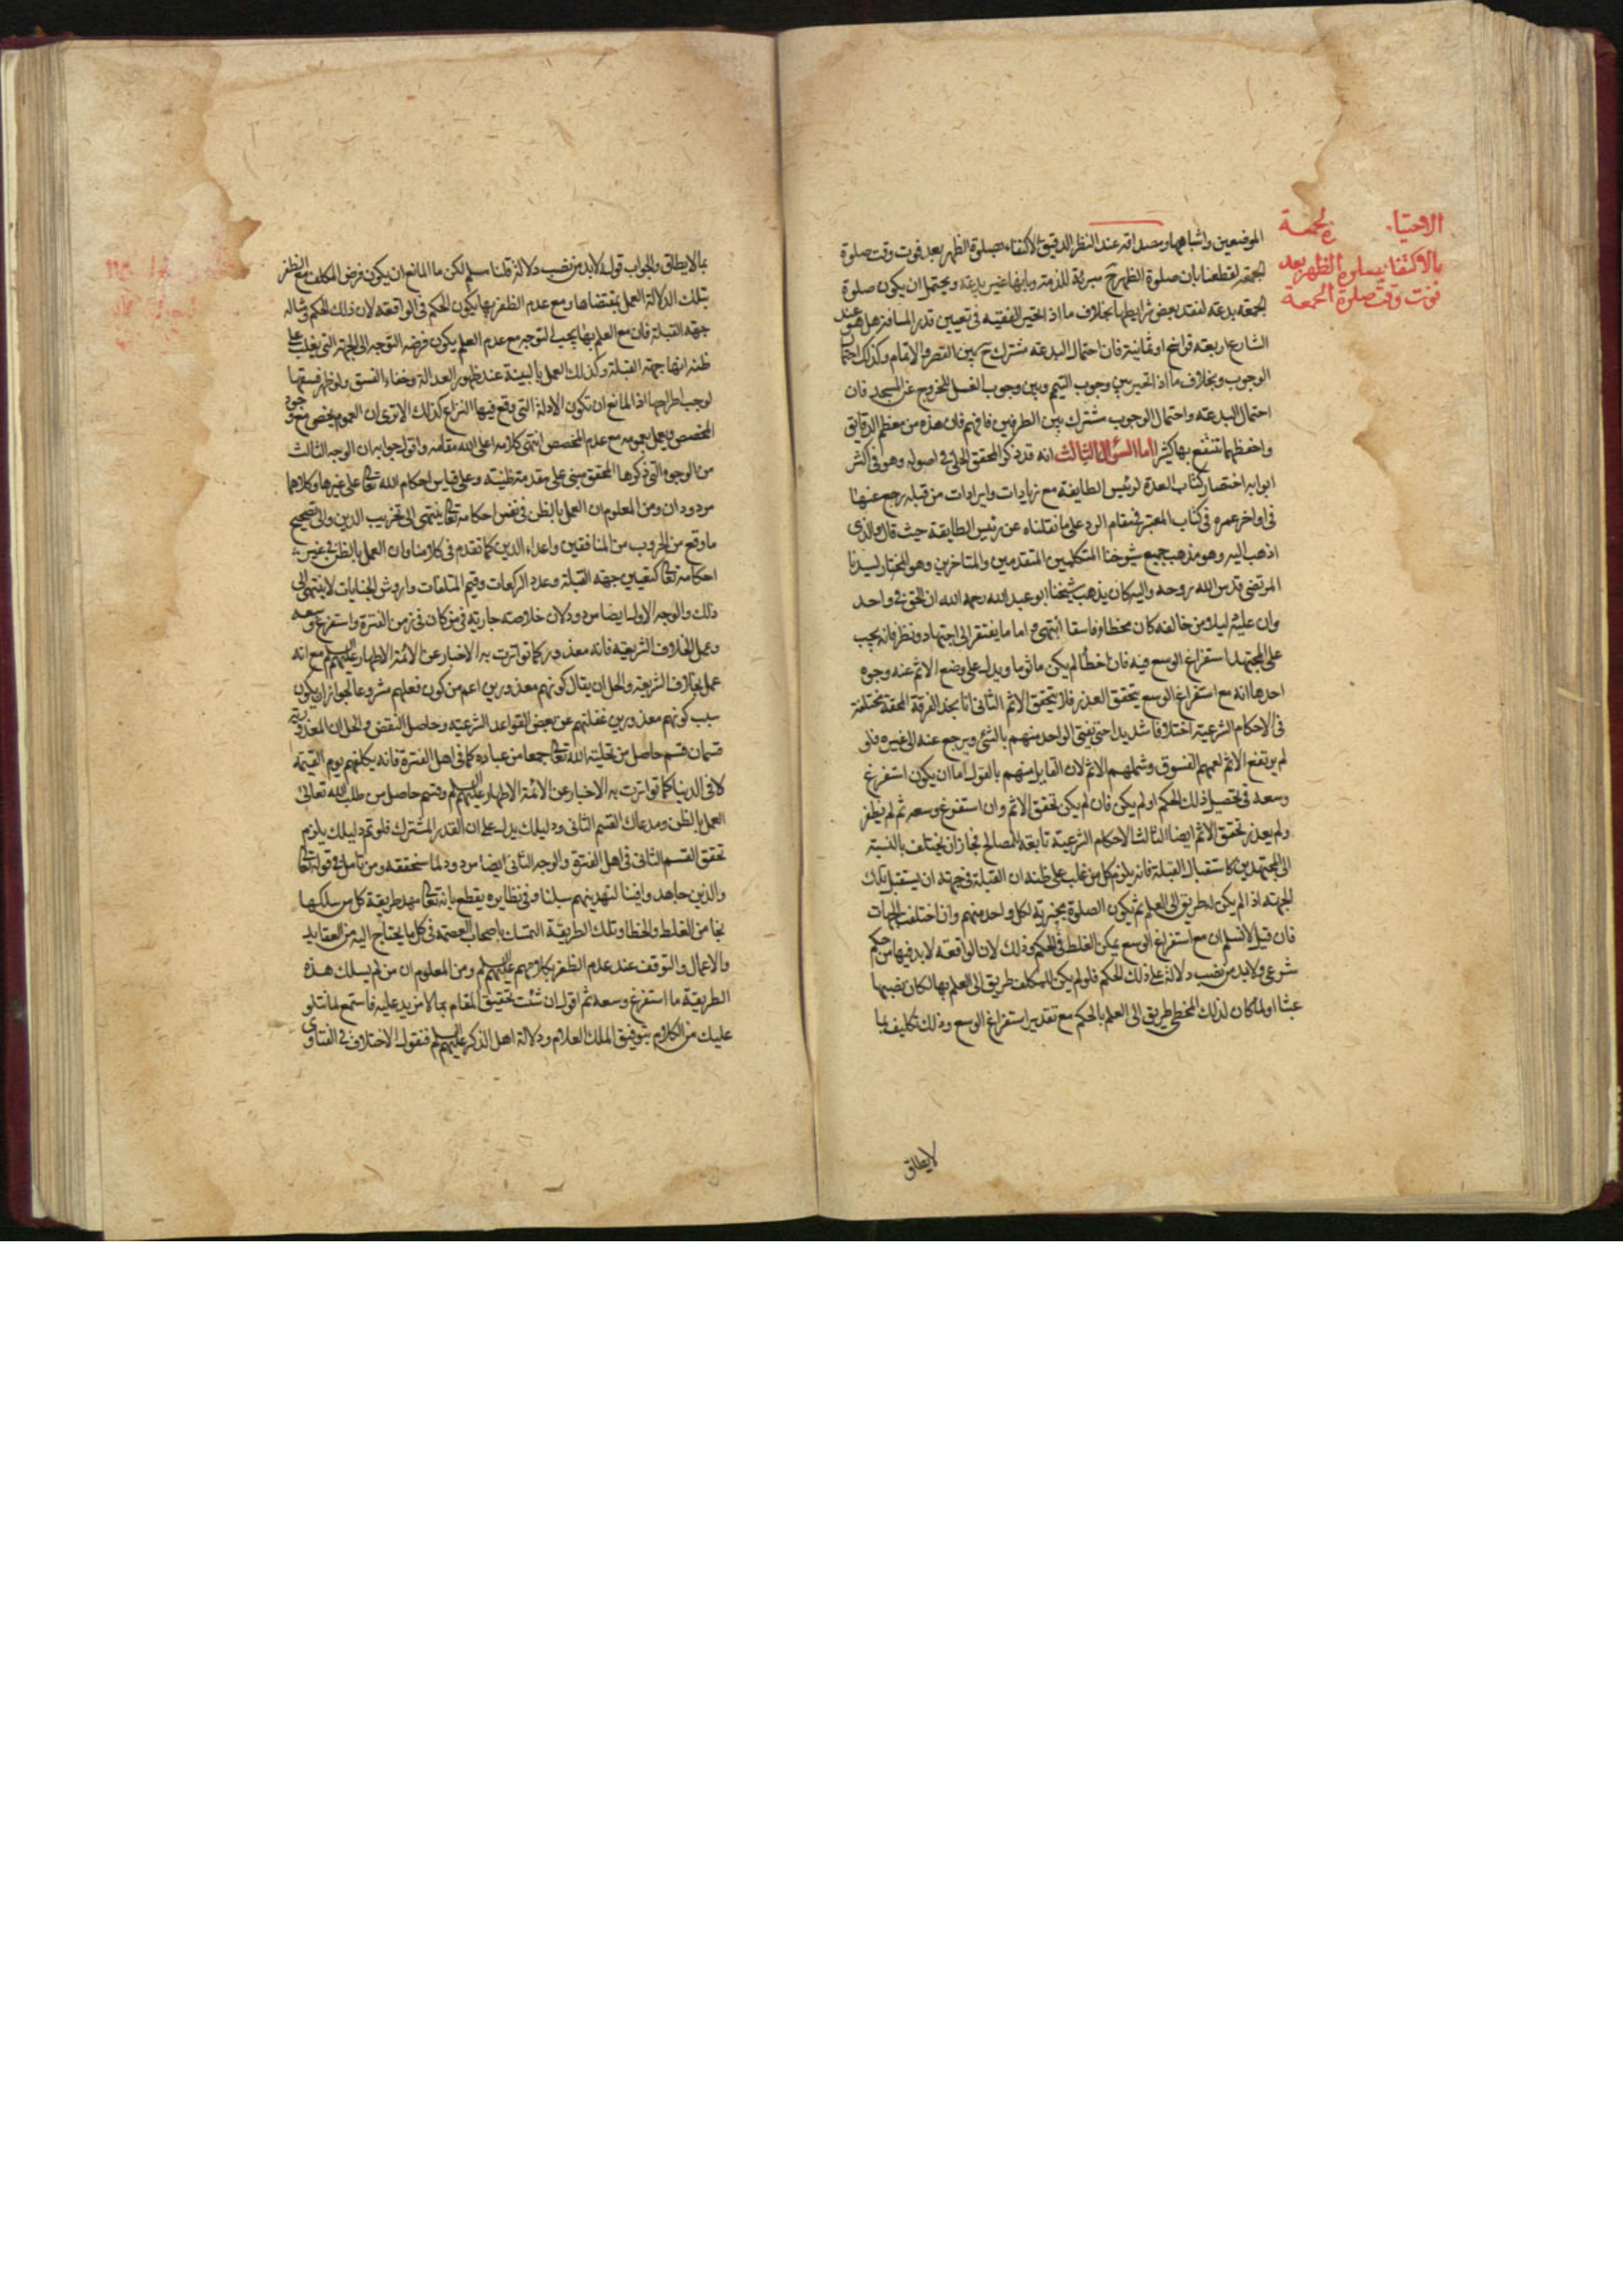 الاحتياط ... الجمعة
بالاكتفا بصلوة الظهر بعد
فوت وقت صلوة الجمعة
الموضعين واشباهها ومصداقه عند النظر الدقيق الاكتفاء بصلوة الظهر بعد فوت وقت صلوة
الجمعة لقطعنا بان صلوة الظهر ح مبرئة للذمة وبانها غير بدعة ويحتمل ان يكون صلوة
الجمعة بدعة لفقد بعض شرايطها بخلاف ما اذا تحير الفقيه في تعيين قدر المسافة هل هو عند
الشارع اربعة فراسخ او ثمانية فان احتمال البدعة مشترك ح بين القصر والاتمام وكذلك احتمال
الوجوب وبخلاف ما اذا تحير بين وجوب التيمم وبين وجوب الغسل للخروج عن المسجد فان
احتمال البدعة واحتمال الوجوب مشترك بين الطرفين فافهم فان هذه من معظم الدقايق
واحفظها تنتفع بها كثيرا اما السؤال الثالث انه قد ذكر المحقق الحلي في اصوله وهو في اكثر
ابوابه اختصار كتاب العدة لرئيس الطايفة مع زيادات وايرادات من قبله رجع عنها
في اواخر عمره في كتاب المعتبر في مقام الرد على ما نقلناه عن رئيس الطايفة حيث قال والذي
اذهب اليه وهو مذهب جميع شيوخنا المتكلمين المتقدمين والمتاخرين وهو المختار لسيدنا
المرتضى قدس الله روحه واليه كان يذهب شيخنا ابو عبد الله رحمه الله ان الحق في واحد
وان عليه دليلا من خالفه كان مخطئا وفاسقا انتهى و اما ما يفتقر الى اجتهاد ونظر فانه يجب
على المجتهد استفراغ الوسع فيه فان اخطأ لم يكن ماثوما ويدل على وضع الاثم عنه وجوه
احدها انه مع استفراغ الوسع يتحقق العذر فلا يتحقق الاثم الثاني انا نجد الفرقة المحقة مختلفة
في الاحكام الشرعية اختلافا شديدا حتى يفتي الواحد منهم بالشئ ويرجع عنه الى غيره فلو
لم يرتفع الاثم لعمهم الفسوق وشملهم الاثم لان القايل منهم بالقول اما ان يكون استفرغ
وسعه في تحصيل ذلك الحكم او لم يكن فان لم يكن تحقق الاثم وان استفرغ وسعه ثم لم يظفر
ولم يعذر تحقق الاثم ايضا الثالث الاحكام الشرعية تابعة للمصالح فجاز ان يختلف بالنسبة
الى المجتهدين كاستقبال القبلة فانه يلزم كل من غلب على ظنه ان القبلة في جهة ان يستقبل تلك
الجهة اذا لم يكن له طريق الى العلم ثم يكون الصلوة مجزية لكل واحد منهم وان اختلفت الجهات
فان قيل لا نسلم ان مع استفراغ الوسع يمكن الغلط في الحكم وذلك لان الواقعة لا بد فيها من حكم
شرعي ولا بد من نصب دلالة على ذلك الحكم فلو لم يكن للمكلف طريق الى العلم بها لكان نصبها
عبثا اولما كان لذلك المخطى طريق الى العلم بالحكم مع تقدير استفراغ الوسع وذلك تكليف بما
لا يطاق
بما لا يطاق والجواب قوله لا بد من نصب دلالة قلنا مسلم لكن ما المانع ان يكون فرض المكلف مع الظفر
بتلك الدلالة العمل بمقتضاها ومع عدم الظفر بها يكون الحكم في الواقعة لا ذلك الحكم ومثاله
جهة القبلة فان مع العلم بها يجب التوجه ومع عدم العلم يكون فرضه التوجه الى الجهة التي يغلب على
ظنه انها جهة القبلة وكذلك العمل بالبينة عند ظهور العدالة وخفاء الفسق ولو ظهر فسقها
لوجب اطراحها اذا المانع ان تكون الادلة التي وقع فيها النزاع كذلك الا ترى ان العموم يخص مع وجود
المخصص ويعمل بعمومه مع عدم المخصص انتهى كلامه اعلى الله مقامه واقول جوابه ان الوجه الثالث
من الوجوه التي ذكرها المحقق مبني على مقدمة ظنية وعلى قياس احكام الله تعالى على غيرها وكلاهما
مردودان ومن المعلوم ان العمل بالظن في نفس احكامه تعالى ينتهي الى تخريب الدين والى تصحيح
ما وقع من الحروب من المنافقين واعداء الدين كما تقدم في كلامنا وان العمل بالظن في غير
احكامه تعالى كتعيين جهة القبلة وعدد الركعات وقيم المتلفات واروش الجنايات لا ينتهي الى
ذلك والوجه الاول ايضا مردود لان خلاصته جارية في من كان في زمن الفترة واستفرغ وسعه
وعمل بخلاف الشريعة فانه معذور كما تواترت به الاخبار عن الائمة الاطهار عليهم السلم مع انه
عمل بخلاف الشريعة والحل ان يقال كونهم معذورين اعم من كون فعلهم مشروعا لجواز ان يكون
سبب كونهم معذورين غفلتهم عن بعض القواعد الشرعية وحاصل النقض والحل ان المعذورية
قسمان قسم حاصل من تخلية الله تعالى جمعا من عباده كما في اهل الفترة فانه يكلفهم يوم القيمة
لا في الدنيا كما تواترت به الاخبار عن الائمة الاطهار عليهم السلم وقسم حاصل من طلب الله تعالى
العمل بالظن ومدعاك القسم الثاني ودليلك يدل على ان القدر المشترك فلو تم دليلك يلزم
تحقق القسم الثاني في اهل الفترة والوجه الثاني ايضا مردود لما سنحققه ومن تامل في قوله تعالى
والذين جاهدوا فينا لنهدينهم سبلنا وفي نظايره يقطع بانه تعالى مهد طريقة كل من سلكها
نجا من الغلط والخطا وتلك الطريقة التمسك باصحاب العصمة في كل ما يحتاج اليه من العقايد
والاعمال والتوقف عند عدم الظفر بكلامهم عليهم السلم ومن المعلوم ان من لم يسلك هذه
الطريقة ما استفرغ وسعه ثم اقول ان شئت تحقيق المقام بما لا مزيد عليه فاستمع لما نتلو
عليك من الكلام بتوفيق الملك العلام ودلالة اهل الذكر عليهم السلم فنقول الاختلاف في الفتاوى